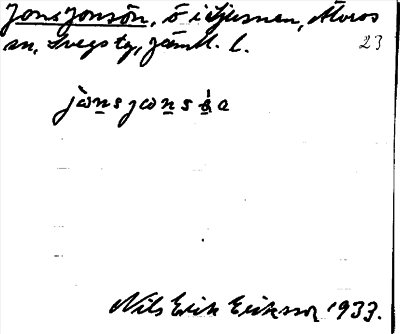 Jons Jonsön, ö i Ljusnan, Älvros
sn, Svegs tg, Jämtl. l.
23
Nils Erik Eriksson 1933.